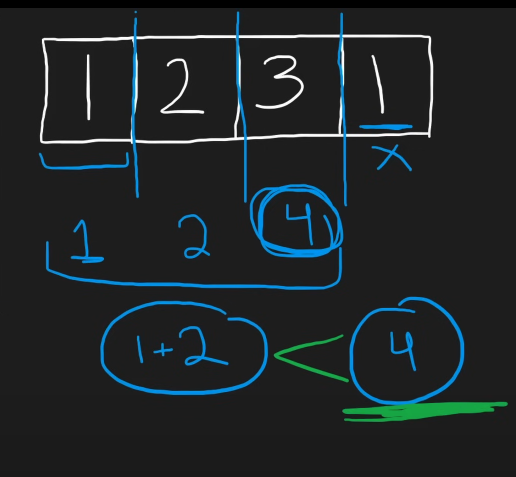 1 2 3 1
x
1 2 4
1+2 < 4